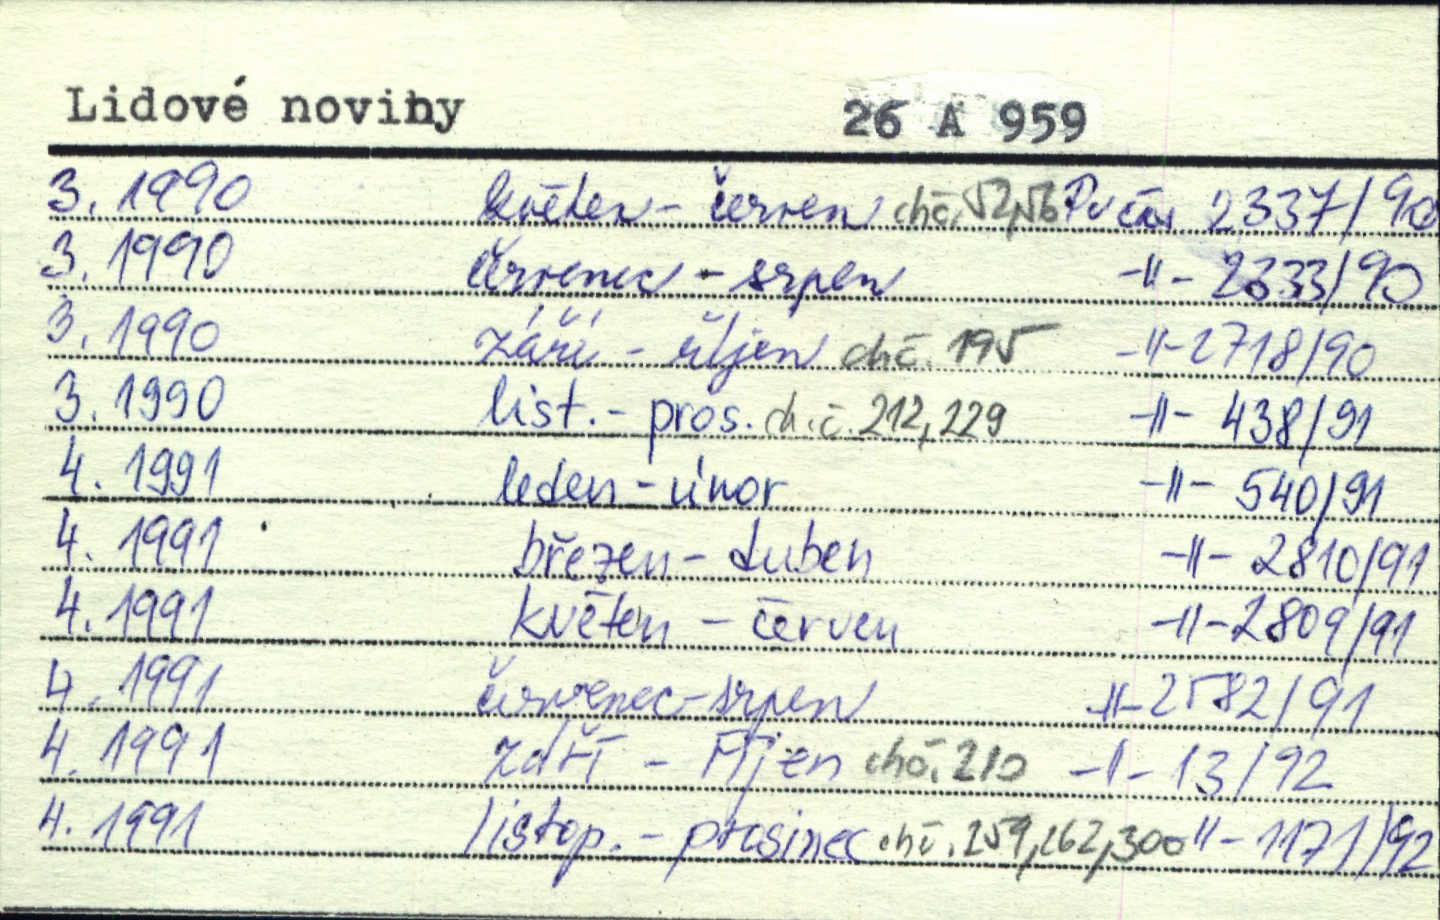 Lidové noviny 26 A 959
3. 1990 květen - červen chč. 52,56 Pv čás 2337/90
3. 1990 červenec - srpen -||- 2333/90
3. 1990 září - říjen chč. 195 -||- 2718/90
3. 1990 list. - pros. ch.č. 212, 229 -||- 438/91
4. 1991 leden - únor -||- 540/91
4. 1991 březen - duben -||- 2810/91
4. 1991 květen - červen -||- 2809/91
4. 1991 červenec - srpen -||- 2582/91
4. 1991 září - říjen chč. 210 -||- 13/92
4. 1991 listop. - prosinec chč. 259, 262, 300 -||- 1171/92